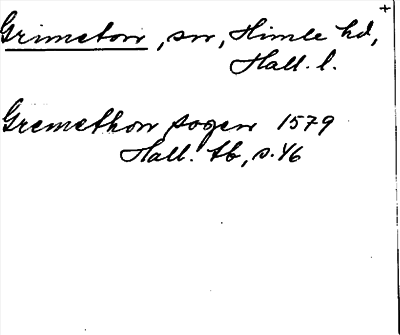 +
Grimeton, sn, Himle hd,
Hall. l.
Gremethon sogen 1579
Hall. tb, s. 46